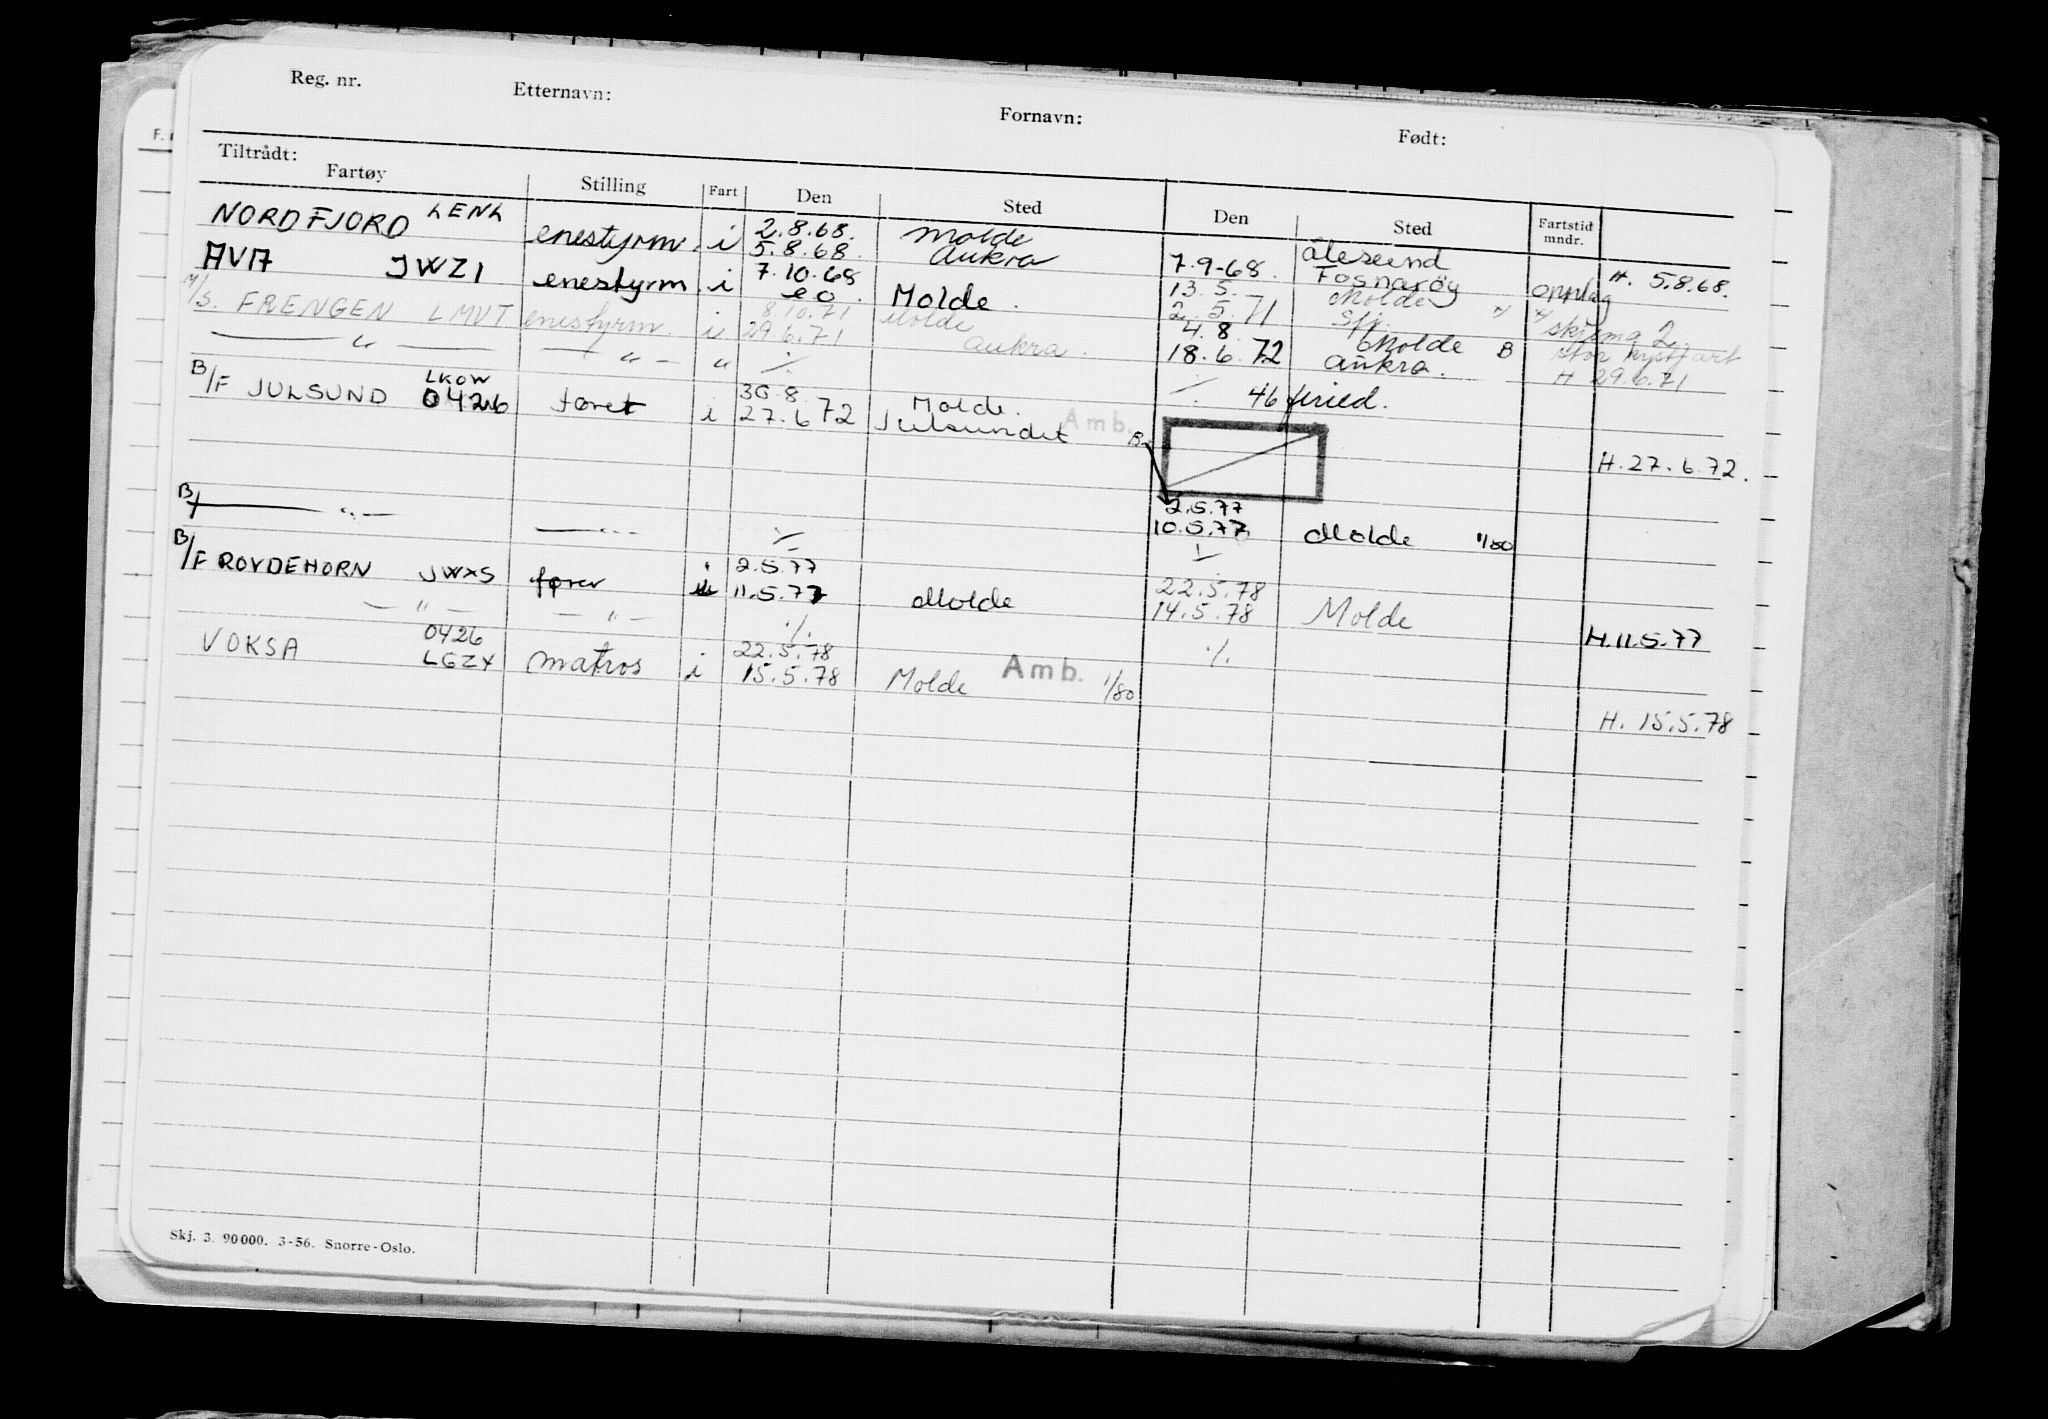 Reg. nr. Etternavn: Fornavn: Født:
F.
Tiltrådt:
Fartøy Stilling Fart Den Sted Den Sted Fartstid mndr.
NORDFJORD LENL enestyrm. i 2.8.68. Molde
5.8.68. Aukra 7.9-68. Ålesund H. 5.8.68.
AVA JWZI enestyrm i 7.10.68 13.5. Fosnarøy opplag
e o. Molde. 2.5.71 Molde
M/S. FRENGEN LMVT enestyrm i 8.10.71 Molde 4.8. Sfj. skjema 2
29.6.71 Aukra. 18.6.72 Molde B stor kystfart
—„— —„— „ ./. Aukra. H 29.6.71
B/F JULSUND LKOW 30.8. Molde. ./. 46 friled.
0426 føret i 27.6.72 Julsundet Amb. B.
H. 27.6.72.
B/ —„— —„— ./. 2.5.77
10.5.77 Molde 1/80
B/F ROVDEHORN JWXS fører i 2.5.77 ./.
11.5.77 Molde 22.5.78
—„— —„— ./. 14.5.78 Molde
H.11.5.77
VOKSA 0426 22.5.78 ./.
LGZY matros i 15.5.78 Molde Amb. 1/80
H. 15.5.78
Skj. 3. 90000. 3-56. Snorre-Oslo.